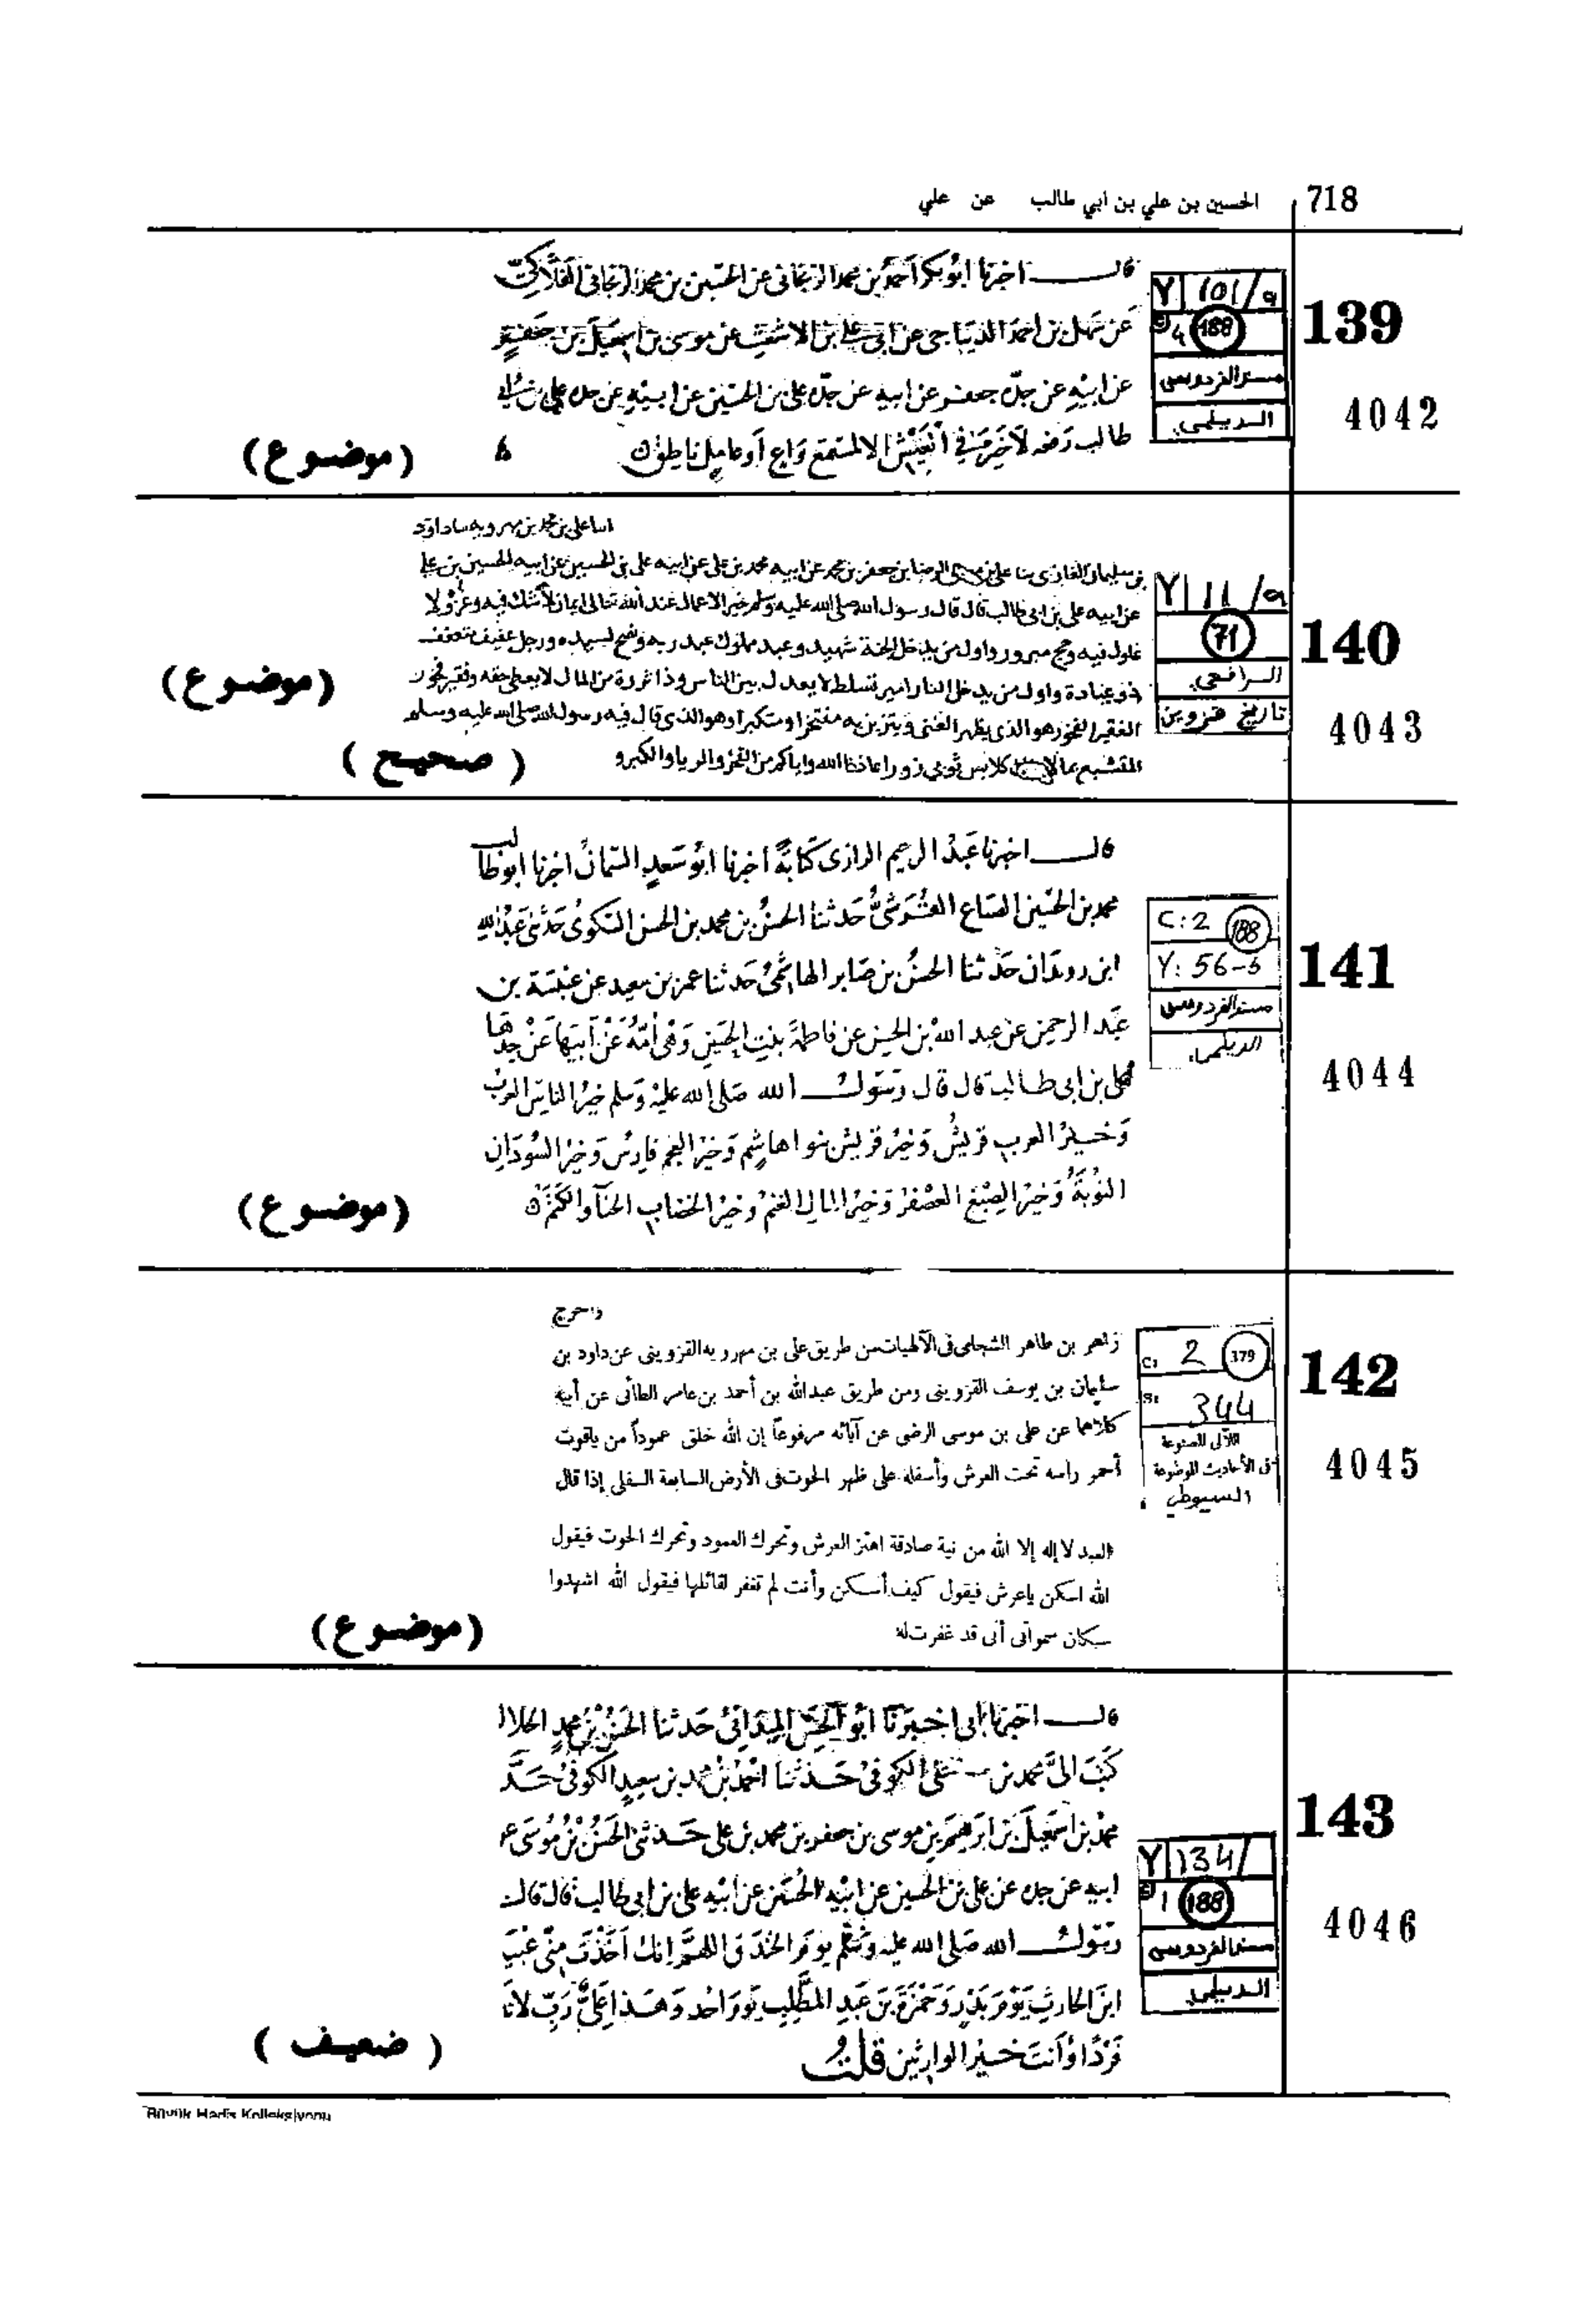 718 الحسين بن علي بن ابي طالب عن علي
139
4042
Y 101/a
4 188
مسند الفردوسى
الديلمى
قال اخبرنا ابو بكر احمد بن محمد الزنجانى عن الحسين بن محمد الزنجانى الفلاكى
عن سهل بن احمد الديباجى عن ابى على بن الاشعث عن موسى بن اسمعيل بن جعفر
عن ابيه عن جده جعفر عن ابيه عن جده على بن الحسين عن ابيه عن جده على بن ابى
طالب رفعه لاخير فى العيش الا لمستمع واع او عالم ناطق
(موضوع)
140
4043
Y 11/a
71
الرافعى
تاريخ قزوين
انبا على بن محمد بن مهرويه ثنا داود
بن سليمان الغازى ثنا على بن موسى الرضا بن جعفر بن محمد عن ابيه محمد بن على عن ابيه على بن الحسين عن ابيه الحسين بن على
عن ابيه على بن ابى طالب قال قال رسول الله صلى الله عليه وسلم خير الاعمال عند الله تعالى ايمان لا شك فيه وغزو لا
غلول فيه وحج مبرور واول من يدخل الجنة شهيد وعبد مملوك عبد ربه ونصح لسيده ورجل عفيف متعفف
ذو عبادة واول من يدخل النار امير تسلط لا يعدل بين الناس وذا ثروة من المال لا يعطى حقه وفقير فخور
الفقير الفخور هو الذى يظهر الغنى ويتزين به مفتخرا ومتكبرا وهو الذى قال فيه رسول الله صلى الله عليه وسلم
المتشبع بما لا كلابس ثوبى زور اعاذنا الله واياكم من الفخر والريا والكبر و
(موضوع)
(صحيح)
141
4044
C: 2 188
Y: 56-b
مسند الفردوسى
الديلمى
قال اخبرنا عبد الرحيم الرازى كتابة اخبرنا ابو سعد السمان اخبرنا ابو طالب
محمد بن الحسين الصباغ القرشى حدثنا الحسن بن محمد بن الحسن السكونى حدثنى عبد الله
ابن حدثنا الحسن بن صابر الهاشمى حدثنا عمر بن سعيد عن عنبسة بن
عبد الرحمن عن عبد الله بن الحسن عن فاطمة بنت الحسين وهى امه عن ابيها عن جدها
على بن ابى طالب قال قال رسول الله صلى الله عليه وسلم خير الناس العرب
وخير العرب قريش وخير قريش بنوا هاشم وخير العجم فارس وخير السودان
النوبة وخير الصبغ العصفر وخير المال الغنم وخير الخضاب الحنآ والكتم
(موضوع)
142
4045
C: 2 379
S: 344
اللآلى المصنوعة
فى الأحاديث الموضوعة
السيوطى
واخرج
زاهر بن طاهر الشحامى فى الآلهيات من طريق على بن مهرويه القزوينى عن داود بن
سليمان بن يوسف القزوينى ومن طريق عبدالله بن أحمد بن عامر الطائى عن أبيه
كلاهما عن على بن موسى الرضى عن آبائه مرفوعاً إن الله خلق عموداً من ياقوت
أحمر رأسه تحت العرش وأسفله على ظهر الحوت فى الأرض السابعة السفلى إذا قال
العبد لا إله إلا الله من نية صادقة اهتز العرش وتحرك العمود وتحرك الحوت فيقول
الله اسكن ياعرش فيقول كيف أسكن وأنت لم تغفر لقائلها فيقول الله اشهدوا
سكان سمواتى أنى قد غفرت له
(موضوع)
143
4046
Y 134/
1 188
مسند الفردوسى
الديلمى
قال اخبرنا ابى اخبرنا ابو الحسن الميدانى حدثنا الحسن بن محمد الخلال
كتب الى محمد بن على الكوفى حدثنا احمد بن محمد بن سعيد الكوفى حد
محمد بن اسمعيل بن ابرهيم بن موسى بن جعفر بن محمد بن على حدثنى الحسن بن موسى ع
ابيه عن جده عن على بن الحسين عن ابيه الحسين عن ابيه على بن ابى طالب قال قال
رسول الله صلى الله عليه وسلم يوم الخندق اللهم انك اخذت منى عبيد
ابن الحارث يوم بدر وحمزة بن عبد المطلب يوم احد وهذا على رب لا تذ
فردا وانت خير الوارثين قلت
(ضعيف)
Büyük Hadis Kolleksiyonu